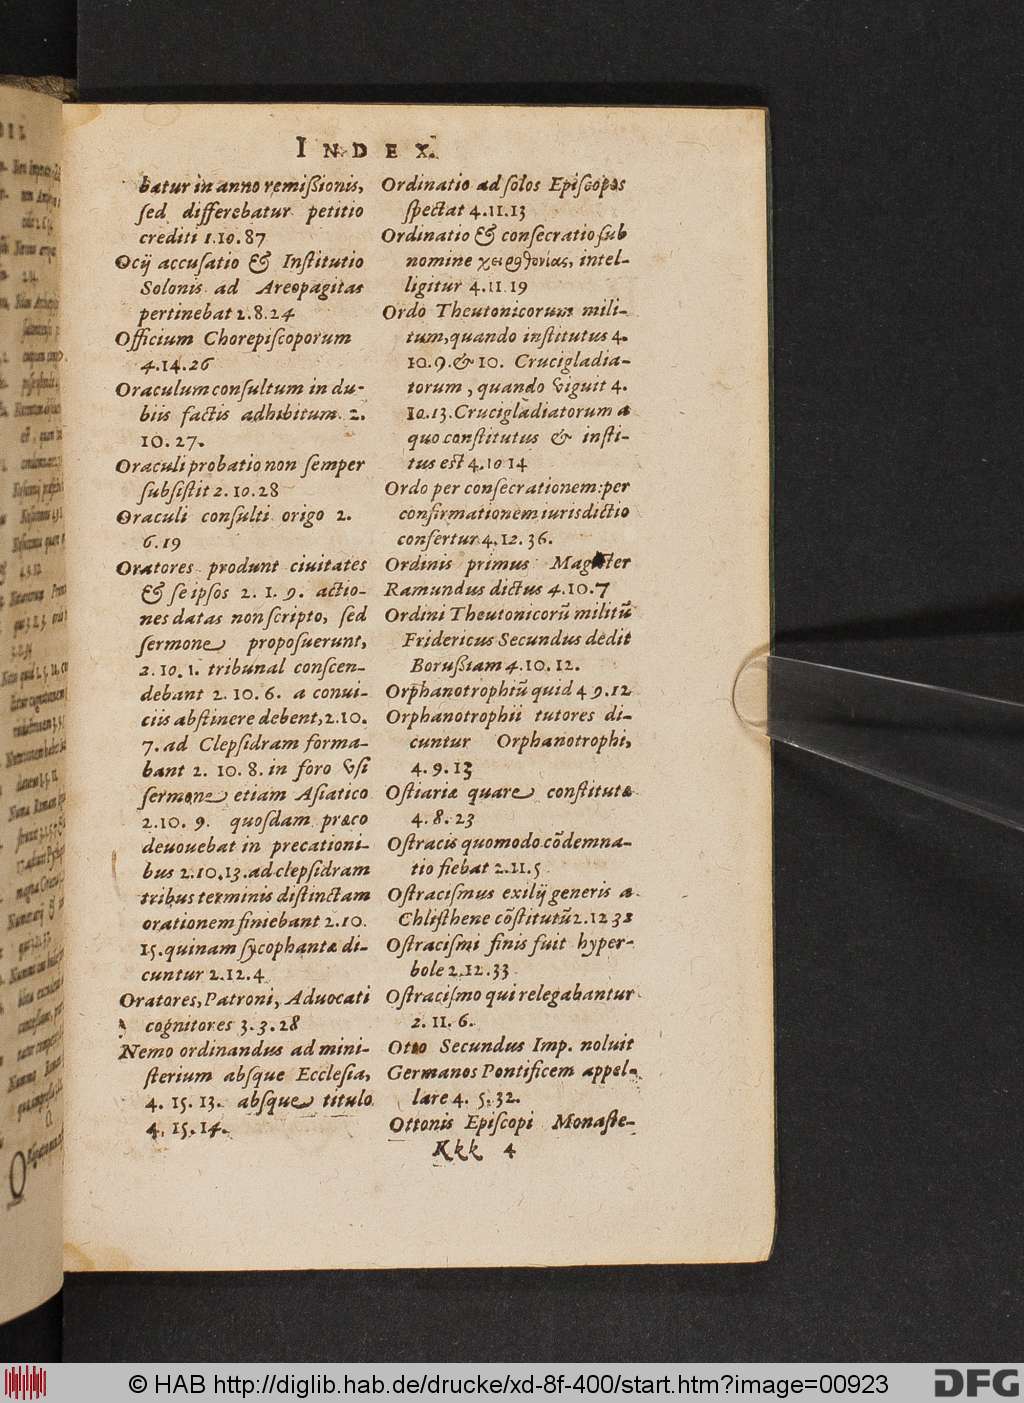 INDEX.
batur in anno remißionis,
sed differebatur petitio
crediti 1.10.87
Ocij accusatio & Institutio
Solonis ad Areopagitas
pertinebat 2.8.24
Officium Chorepiscoporum
4.14.26
Oraculum consultum in du-
biis factis adhibitum 2.
10.27.
Oraculi probatio non semper
subsistit 2.10.28
Oraculi consulti origo 2.
6.19
Oratores produnt ciuitates
& se ipsos 2. 1. 9. actio-
nes datas non scripto, sed
sermone proposuerunt,
2.10.1. tribunal conscen-
debant 2. 10.6. a conui-
ciis abstinere debent, 2.10.
7. ad Clepsidram forma-
bant 2. 10.8. in foro vsi
sermone etiam Asiatico
2.10. 9. quosdam præco
deuouebat in precationi-
bus 2.10.13. ad clepsidram
tribus terminis distinctam
orationem finiebant 2.10.
15. quinam sycophantæ di-
cuntur 2.12.4
Oratores, Patroni, Aduocati
cognitores 3.3.28
Nemo ordinandus ad mini-
sterium absque Ecclesia,
4. 15. 13. absque titulo
4. 15.14.
Ordinatio ad solos Episcopos
spectat 4.11.13
Ordinatio & consecratio sub
nomine χειροτονίας, intel-
ligitur 4.11 19
Ordo Theutonicorum mili-
tum, quando institutus 4.
10.9. & 10. Crucigladia-
torum, quando viguit 4.
10.13. Crucigladiatorum a
quo constitutus & insti-
tus est 4.10 14
Ordo per consecrationem: per
confirmationem iurisdictio
consertur 4.12.36.
Ordinis primus Magister
Ramundus dictus 4.10.7
Ordini Theutonicorũ militũ
Fridericus Secundus dedit
Borußiam 4.10.12.
Orphanotrophiũ quid 4 9.12
Orphanotrophii tutores di-
cuntur Orphanotrophi,
4.9.13
Ostiariæ quare constitutæ
4.8.23
Ostracis quomodo cõdemna-
tio fiebat 2.11.5
Ostracismus exilij generis a
Chlisthene cõstitutũ 2.12 31
Ostracismi finis fuit hyper-
bole 2.12.33
Ostracismo qui relegabantur
2. 11. 6.
Otto Secundus Imp. noluit
Germanos Pontificem appel-
lare 4. 5.32.
Ottonis Episcopi Monaste-
Kkk 4
© HAB http://diglib.hab.de/drucke/xd-8f-400/start.htm?image=00923
DFG